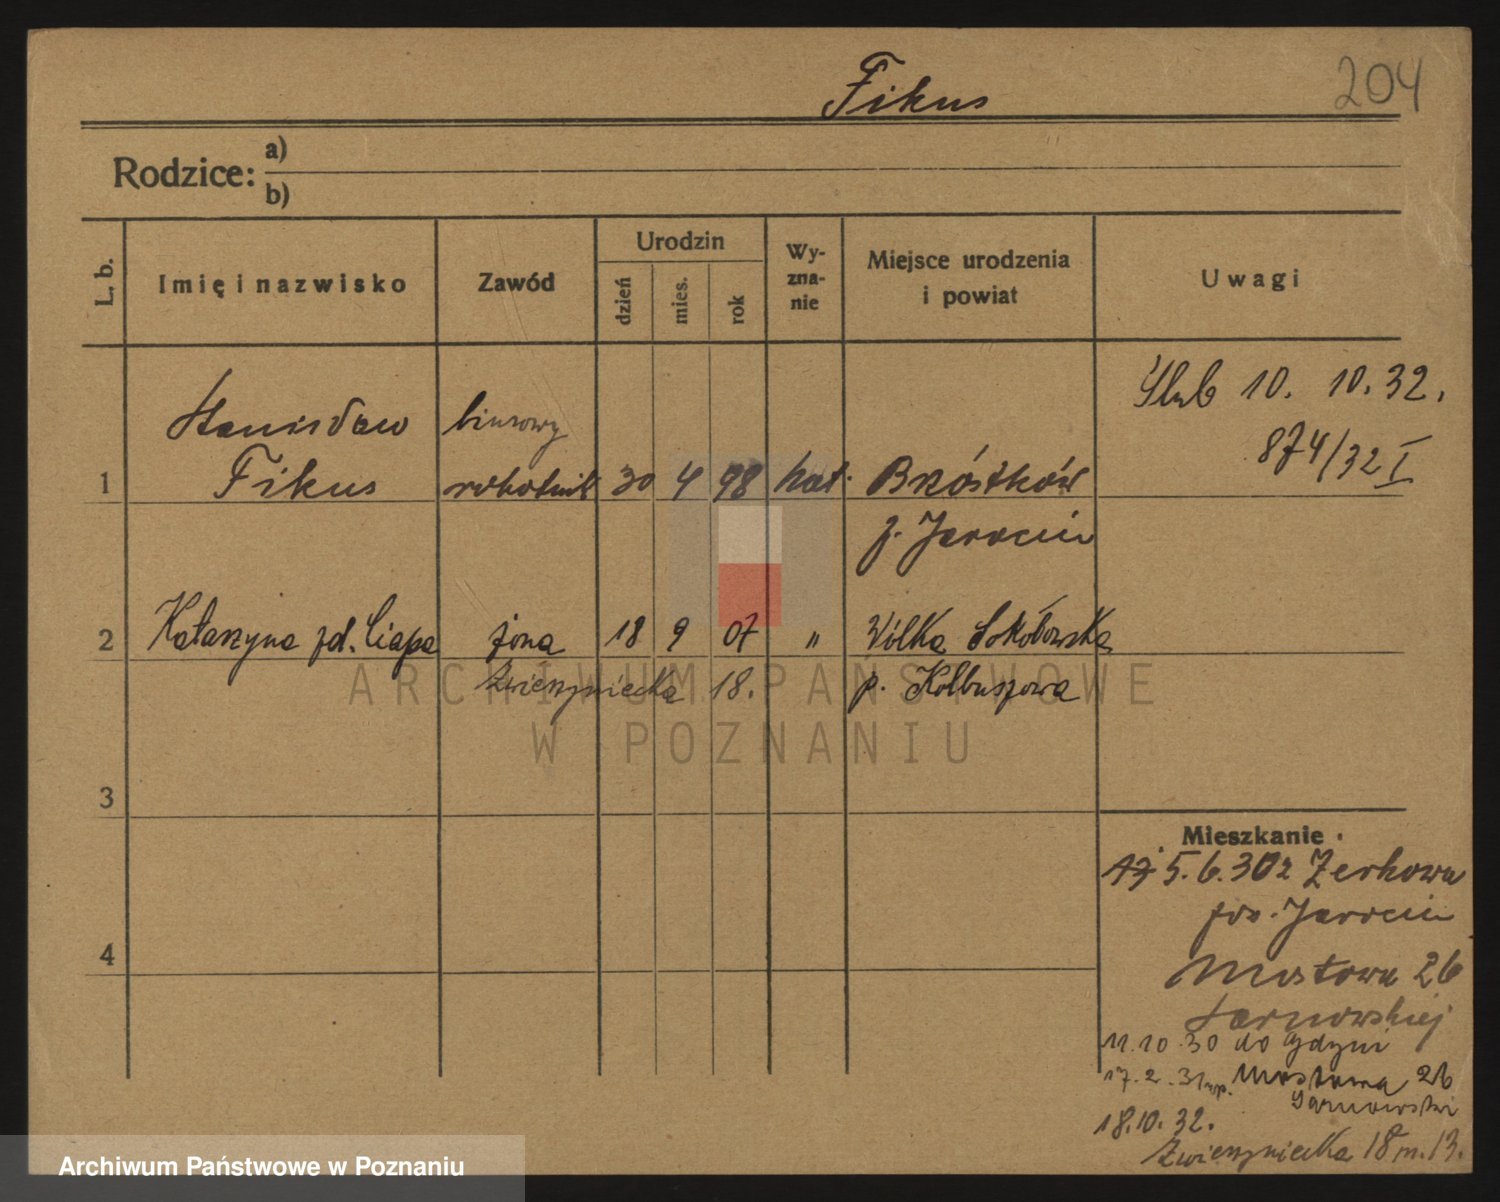 204
Fikus
Rodzice: a)
b)
L. b.
Imię i nazwisko
Zawód
Urodzin
dzień
mies.
rok
Wy-
zna-
nie
Miejsce urodzenia
i powiat
Uwagi
Stanisław biurowy
1 Fikus robotnik 30 4 98 kat. Brzóstków
p. Jarocin
Ślub 10. 10. 32.
874/32 I
2 Katarzyna zd. Ciapa żona 18 9 07 " Wólka Sokołowska
Zwierzyniecka 18. p. Kolbuszowa
3
4
Mieszkanie
5.6.30 z Żerkowa
pow. Jarocin
Mostowa 26
Tarnowskiej
11.10.30 do Gdyni
17.2.31 Mostowa 26
Tarnowski
18.10.32.
Zwierzyniecka 18 m. 13.
ARCHIWUM PAŃSTWOWE
W POZNANIU
Archiwum Państwowe w Poznaniu